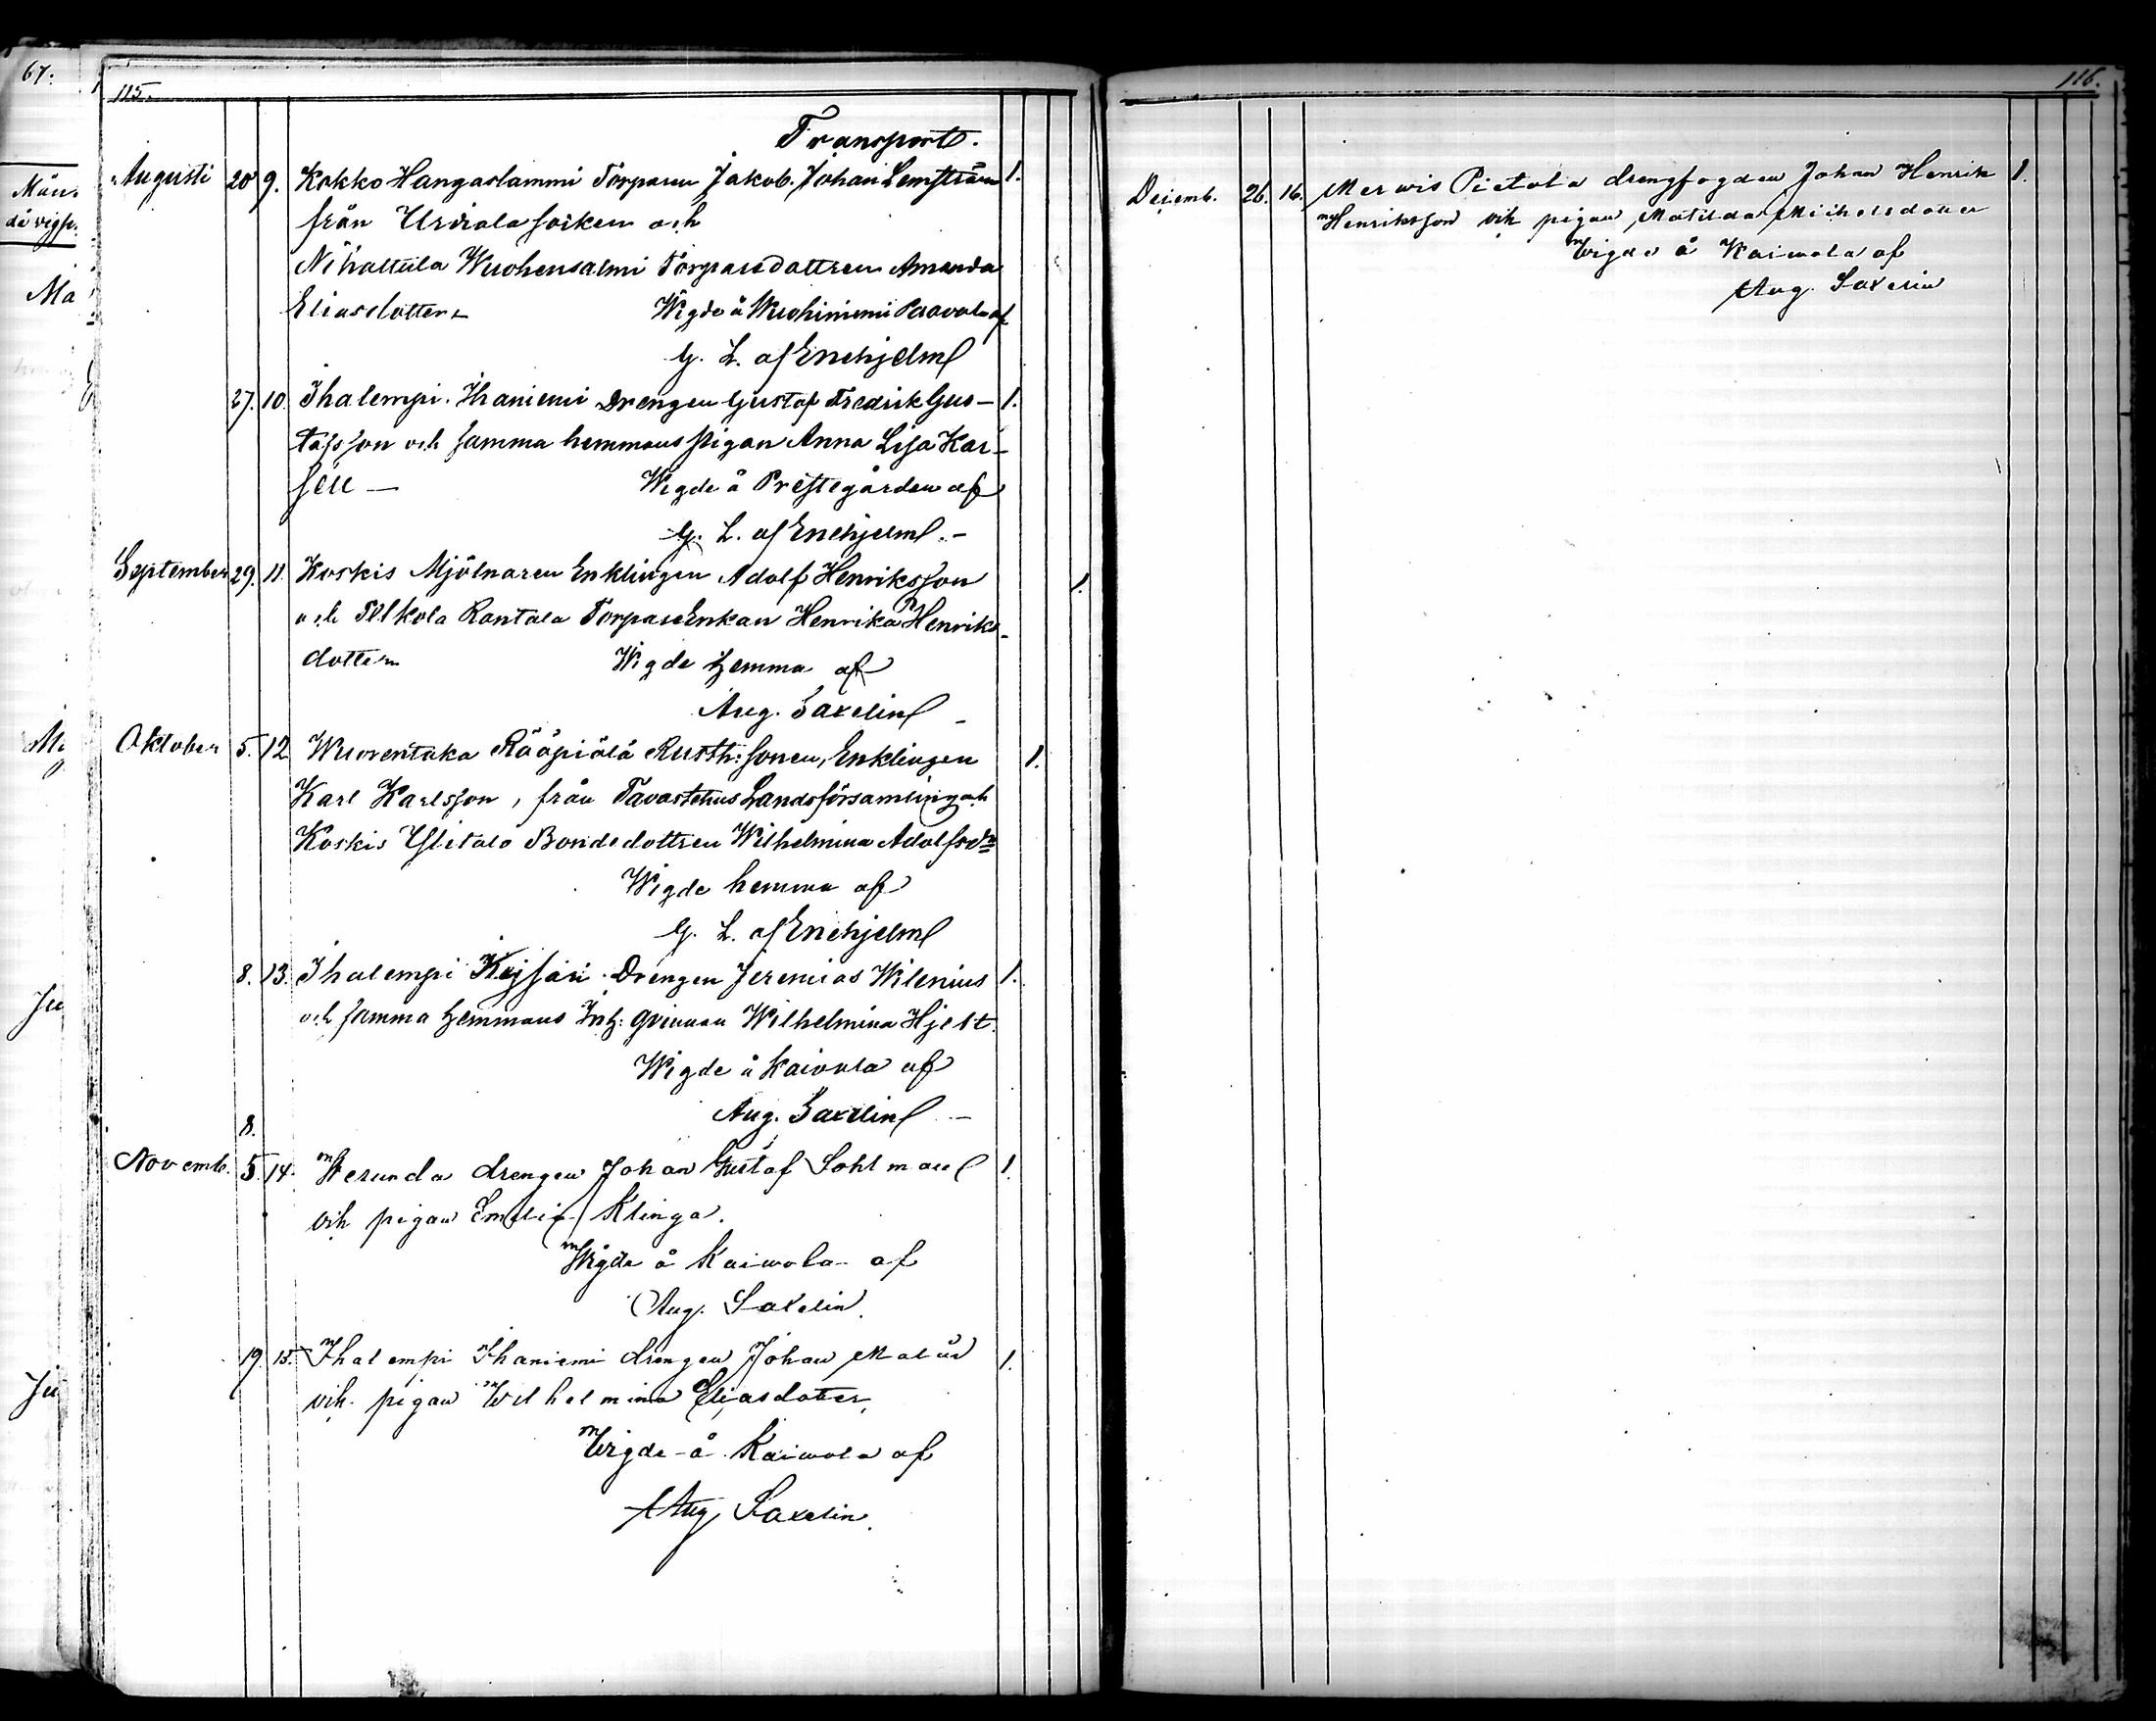 67.
Män.
då vigse.
Ma
115.
Transport.
Augusti 20 9. Kokko Hangaslammi Torparen Jakob Johan Lemström 1.
från Urdiala socken och
Nihattula Wuohensalmi Torparedottren Amanda
Eliasdotter Wigde å Wuohiniemi Paavola af
G. L. af Enehjelm
27. 10. Ihalempi Ihaniemi Drengen Gustaf Fredrik Gus- 1.
tafsson och samma hemmans pigan Anna Lisa Kai-
sell — Wigde å Prestegården af
G. L. af Enehjelm. –
September 29. 11. Koskis Mjölnaren Enklingen Adolf Henriksson 1.
och Pelkola Rantala Torpare Enkan Henrika Henriks-
dotter Wigde hemma af
Aug. Saxelin –
Oktober 5. 12. Wuorentaka Rööpiälä Rusth: sonen, Enklingen 1.
Karl Karlsson, från Tavastehus Landsförsamling och
Koskis Ylitalo Bondedottren Wilhelmina Adolfsdr
Wigde hemma af
G. L. af Enehjelm
8. 13. Ihalempi Kejsari Drengen Jeremias Wilenius 1.
och samma hemmans Inh: qvinnan Wilhelmina Hjelt.
Wigde å Kaivola af
Aug. Saxelin –
8.
Novemb. 5. 14. Werunda drengen Johan Gustaf Sohlman 1.
och pigan Emilia Klinga.
Wigde å Kaiwola af
Aug. Saxelin.
19. 15. Ihalempi Ihaniemi drengen Johan Malin 1.
och pigan Wilhelmina Eliasdotter.
Wigde å Kaiwola af
Aug. Saxelin.
116.
Decemb. 26. 16. Merwis Pietola drengfogden Johan Henrik 1.
Henriksson och pigan Matilda Michelsdotter
Wigde å Kaiwola af
Aug. Saxelin